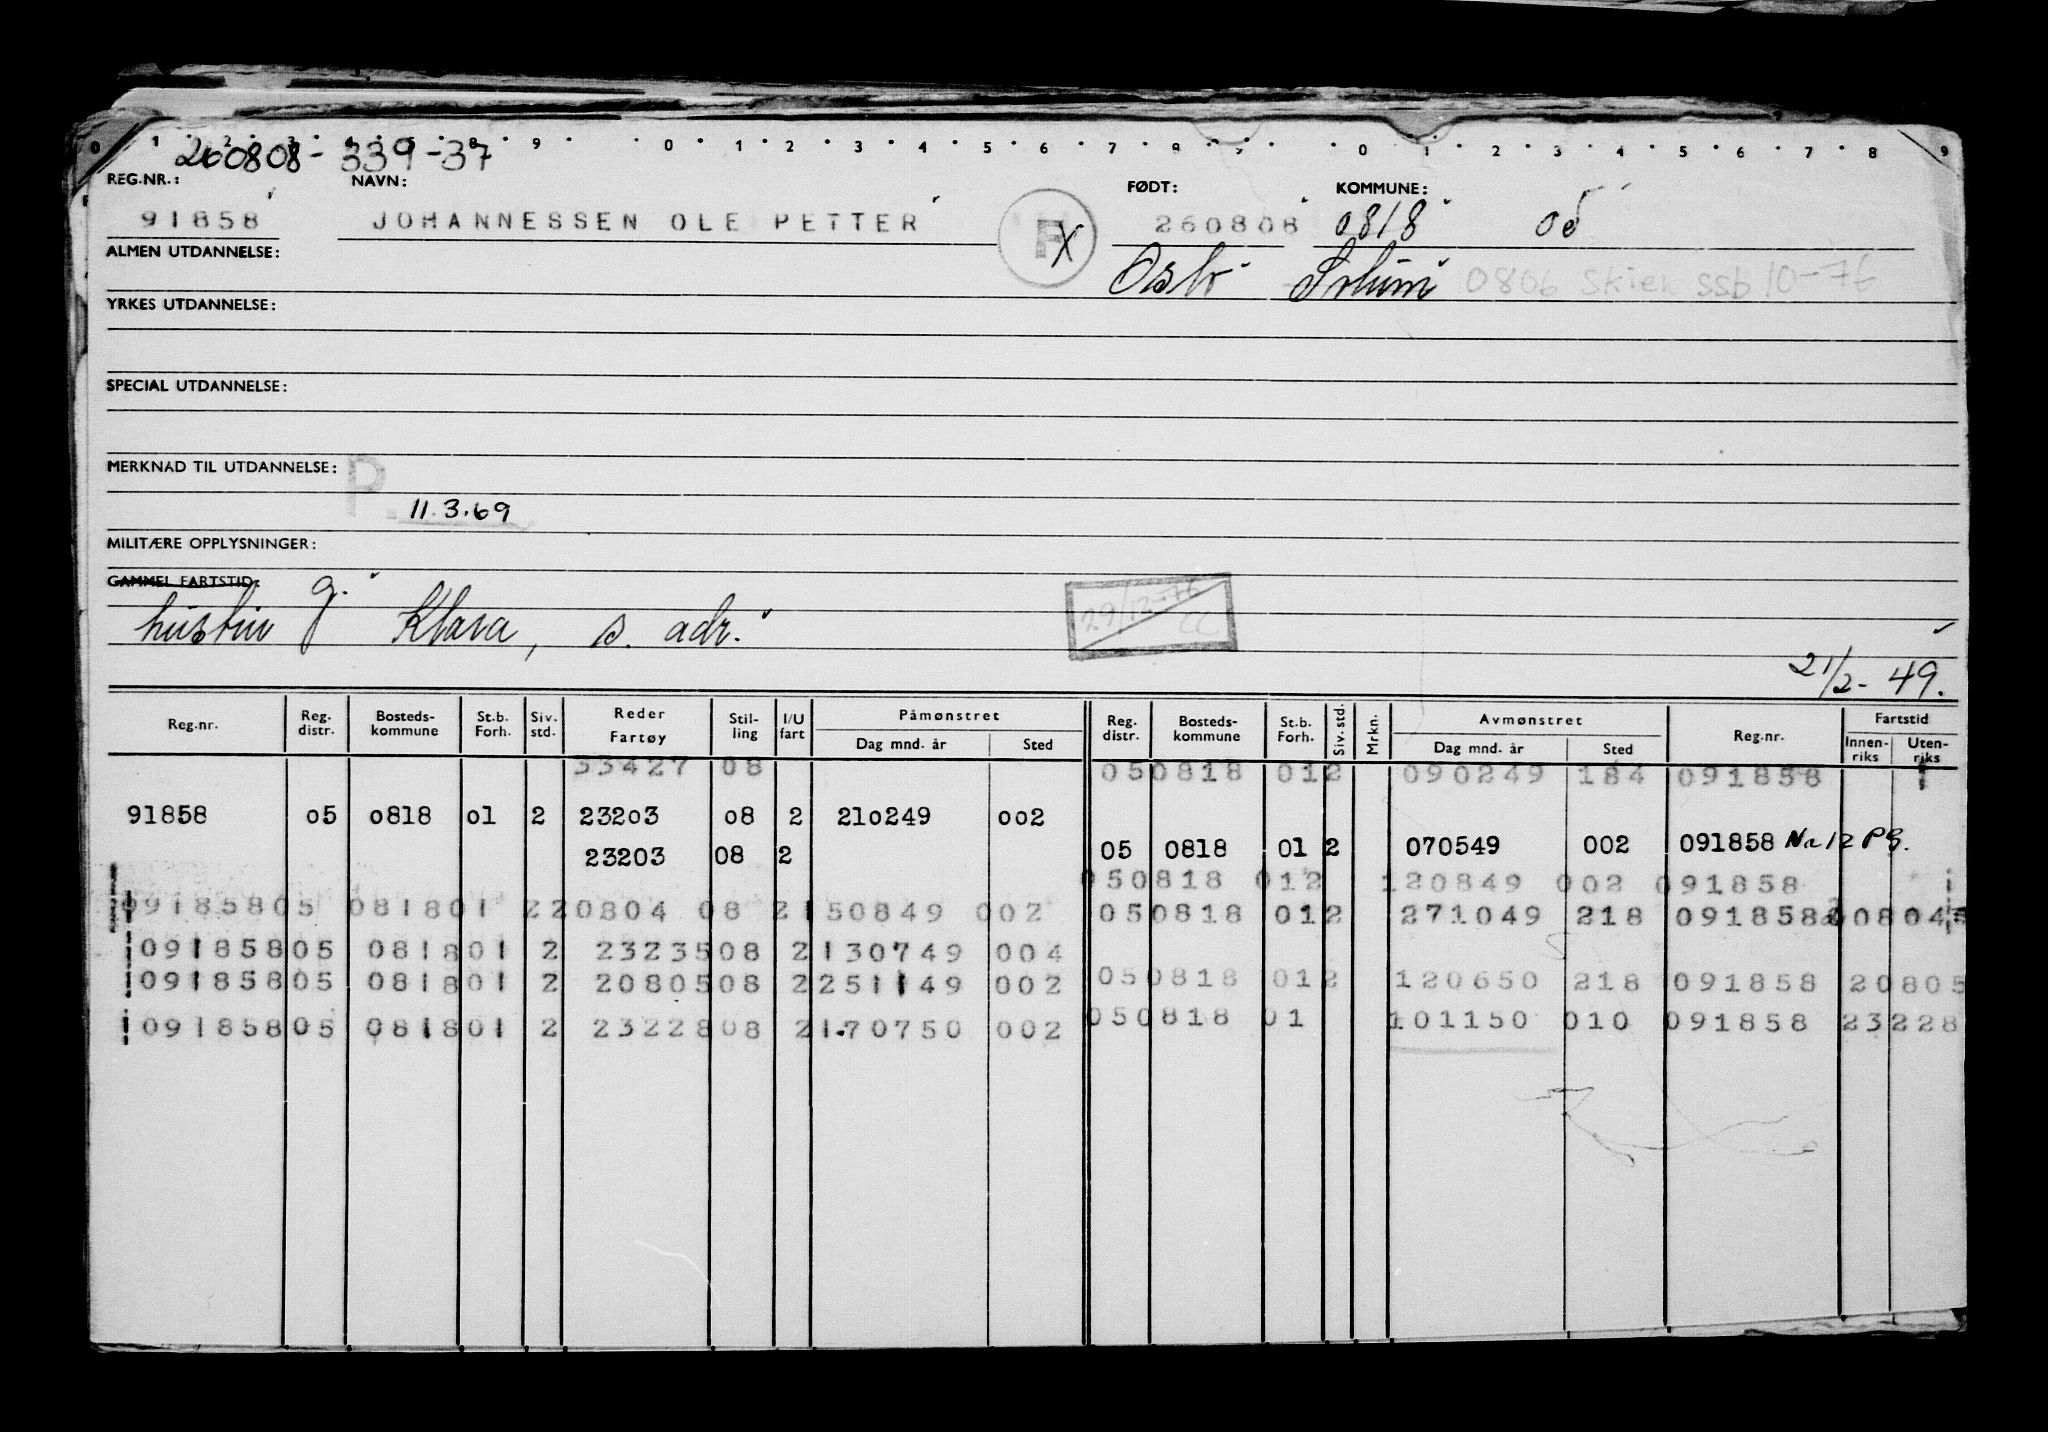 0 1 2 3 4 5 6 7 8 9 0 1 2 3 4 5 6 7 8 9 0 1 2 3 4 5 6 7 8 9
260808-339-37
REG.NR.: NAVN: FØDT: KOMMUNE:
91858 JOHANNESSEN OLE PETTER 260808 0818 05
ALMEN UTDANNELSE: X Oslo Solum 0806 Skien ssb 10-76
YRKES UTDANNELSE:
SPECIAL UTDANNELSE:
MERKNAD TIL UTDANNELSE: P.
11.3.69
MILITÆRE OPPLYSNINGER:
GAMMEL FARTSTID:
hustru g. Klara, s. adr.
29/12-76
CC
21/2-49.
Reg.nr. Reg. distr. Bosteds-kommune St.b. Forh. Siv. std. Reder Fartøy Stil-ling I/U fart Påmønstret Dag mnd. år Sted Reg. distr. Bosteds-kommune St.b. Forh. Siv. std. Mrkn. Avmønstret Dag mnd. år Sted Reg.nr. Fartstid Innen-riks Uten-riks
33427 08 050818 012 090249 184 091858 1
91858 05 0818 01 2 23203 08 2 210249 002
23203 08 2 05 0818 01 2 070549 002 091858 Nr 12 PB.
050818 012 120849 002 091858
09185805 081801 220804 08 2150849 002 050818 012 271049 218 091858 20804
09185805 081801 2 2323508 2130749 004
09185805 081801 2 2080508 2251149 002 050818 012 120650 218 091858 20805
09185805 081801 2 2322808 2170750 002 050818 01 101150 010 091858 23228